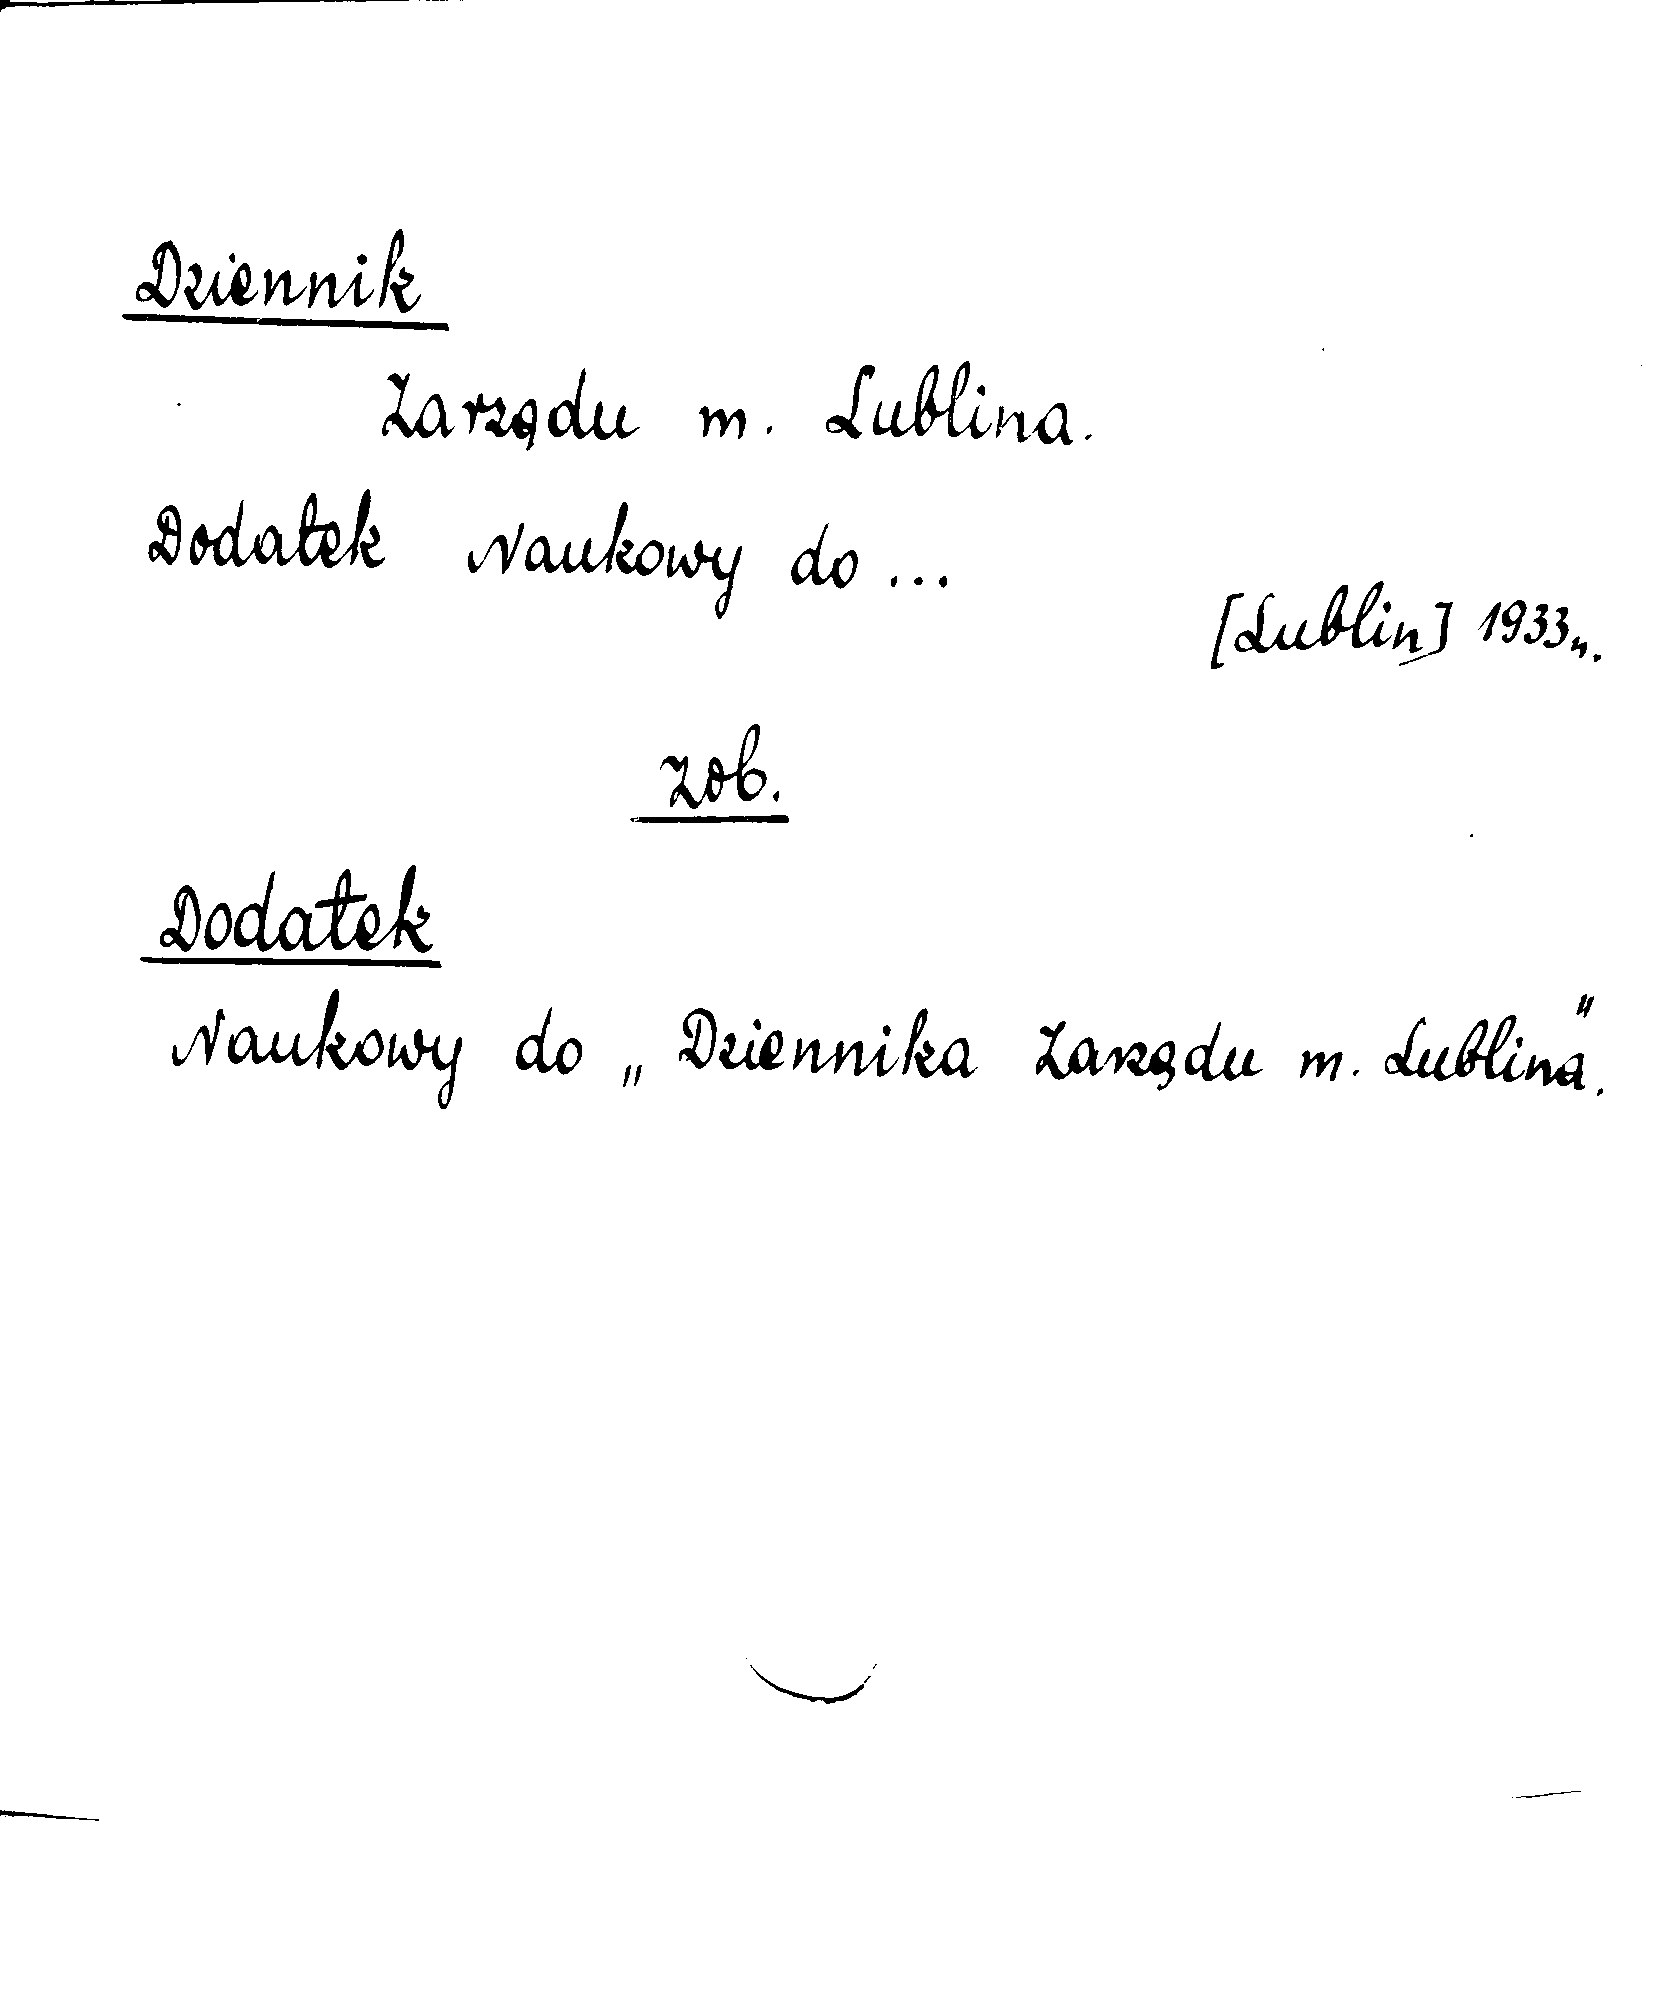 Dziennik
Zarządu m. Lublina.
Dodatek Naukowy do ...
[Lublin] 1933n.
zob.
Dodatek
Naukowy do „Dziennika Zarządu m. Lublina".